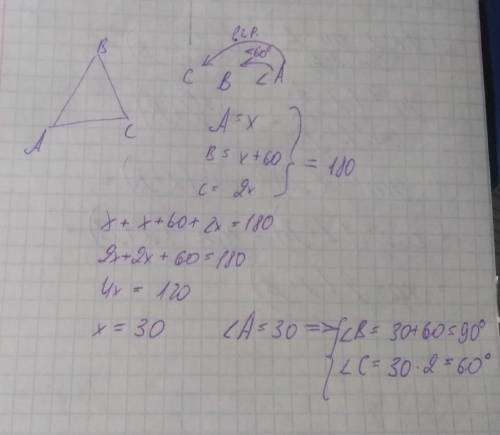 B
A
C
в 2 р.
<60°
C B ∠A
A = x
B = x + 60
C = 2x
= 180
x + x + 60 + 2x = 180
2x + 2x + 60 = 180
4x = 120
x = 30
∠A = 30 => ∠B = 30 + 60 = 90°
∠C = 30 · 2 = 60°